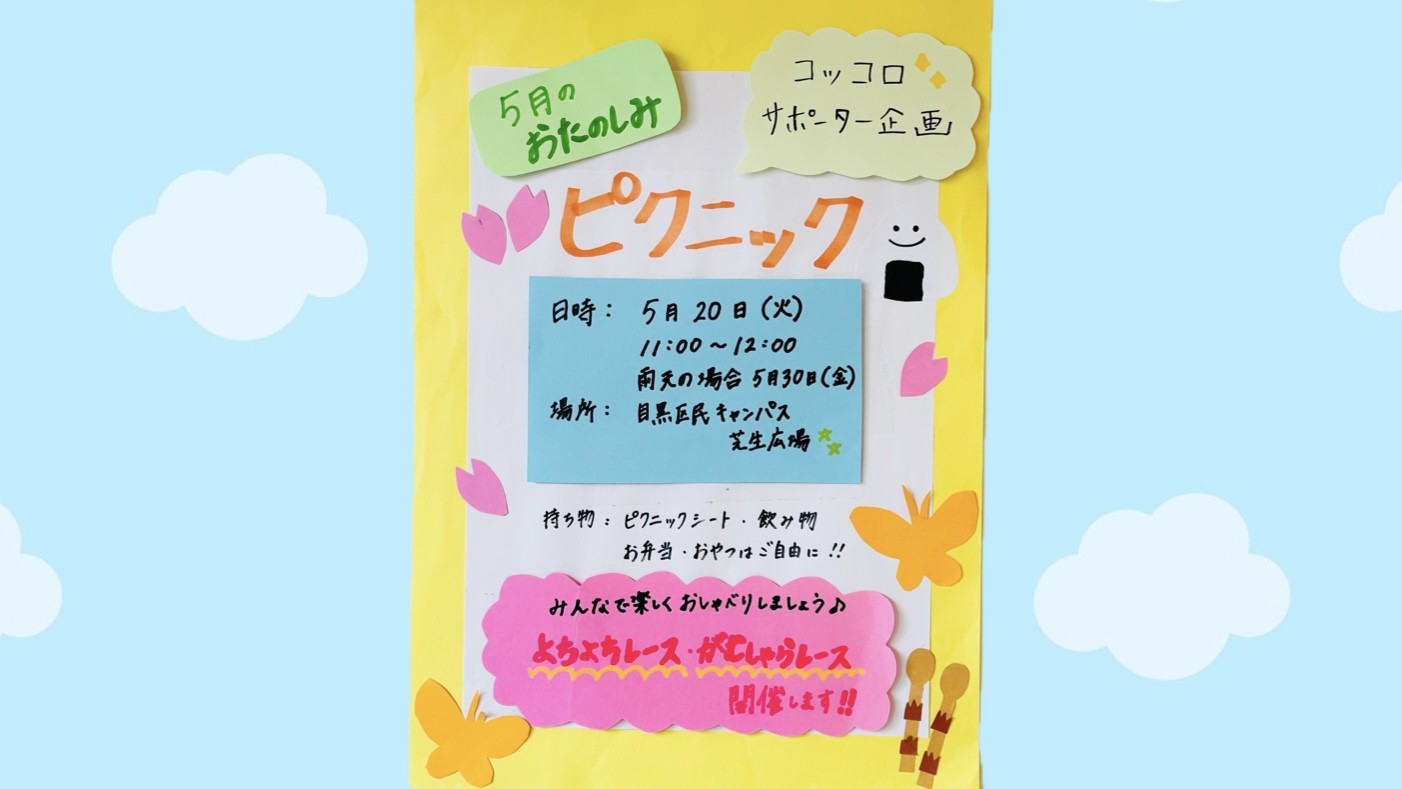 5月の
おたのしみ
コッコロ
サポーター企画
ピクニック
日時： 5月20日(火)
11:00～12:00
雨天の場合 5月30日(金)
場所： 目黒区民キャンパス
芝生広場
持ち物： ピクニックシート・飲み物
お弁当・おやつはご自由に!!
みんなで楽しくおしゃべりしましょう♪
よちよちレース・がむしゃらレース
開催します!!